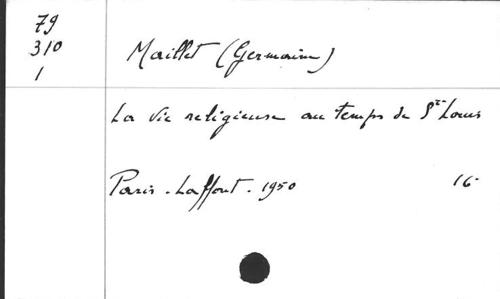 79
310
1
Maillet (Germaine)
La vie religieuse au temps de St Louis
Paris - Laffont - 1950
16-